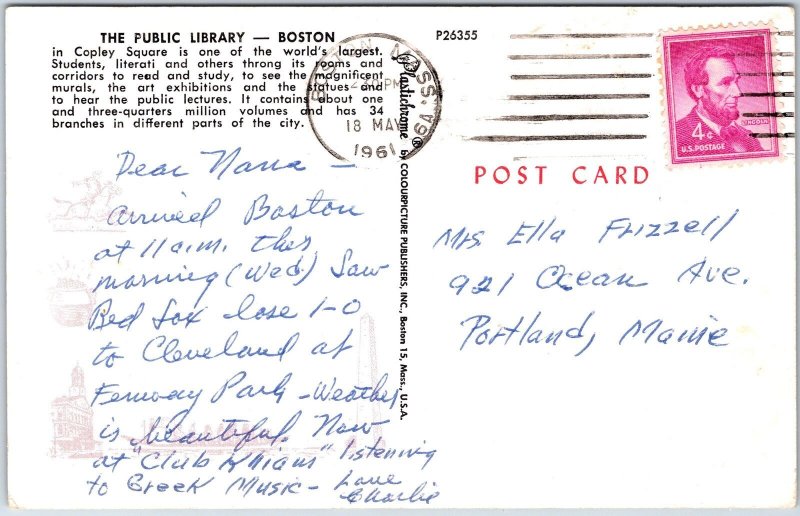 THE PUBLIC LIBRARY — BOSTON
in Copley Square is one of the world's largest.
Students, literati and others throng its rooms and
corridors to read and study, to see the magnificent
murals, the art exhibitions and the statues and
to hear the public lectures. It contains about one
and three-quarters million volumes and has 34
branches in different parts of the city.
Dear Nana —
Arrived Boston
at 11 a.m. this
morning (Wed) Saw
Red Sox lose 1-0
to Cleveland at
Fenway Park - Weather
is beautiful. Now
at "Club Khiam" listening
to Greek Music - Love
Charlie
Plastichrome® by COLOURPICTURE PUBLISHERS, INC., Boston 15, Mass., U.S.A.
P26355
BOSTON MASS.
PM
18 MAY
1961
4¢
LINCOLN
U.S. POSTAGE
POST CARD
Mrs Ella Frizzell
921 Ocean Ave.
Portland, Maine